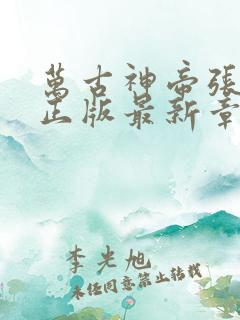 萬古神帝張
正版最新章
李光旭
未经同意禁止转载